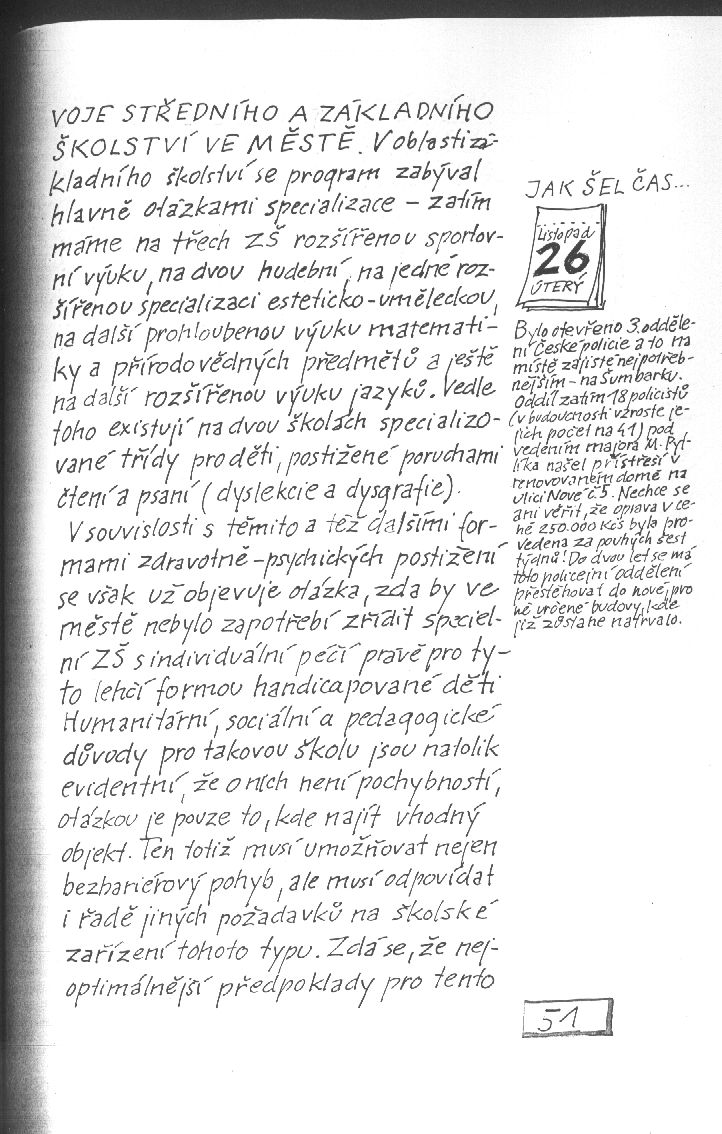 VOJE STŘEDNÍHO A ZÁKLADNÍHO
ŠKOLSTVÍ VE MĚSTĚ. V oblasti zá-
kladního školství se program zabýval
hlavně otázkami specializace – zatím
máme na třech ZŠ rozšířenou sportov-
ní výuku, na dvou hudební, na jedné roz-
šířenou specializaci esteticko-uměleckou,
na další prohloubenou výuku matemati-
ky a přírodovědných předmětů a ještě
na další rozšířenou výuku jazyků. Vedle
toho existují na dvou školách specializo-
vané třídy pro děti, postižené poruchami
čtení a psaní (dyslekcie a dysgrafie).
V souvislosti s těmito a též dalšími for-
mami zdravotně-psychických postižení
se však už objevuje otázka, zda by ve
městě nebylo zapotřebí zřídit speciel-
ní ZŠ s individuální péčí právě pro ty-
to lehčí formou handicapované děti
Humanitární, sociální a pedagogické
důvody pro takovou školu jsou natolik
evidentní, že o nich není pochybností,
otázkou je pouze to, kde najít vhodný
objekt. Ten totiž musí umožňovat nejen
bezbariérový pohyb, ale musí odpovídat
i řadě jiných požadavků na školské
zařízení tohoto typu. Zdá se, že nej-
optimálnější předpoklady pro tento
JAK ŠEL ČAS...
Listopad
26
ÚTERÝ
Bylo otevřeno 3. odděle-
ní České policie a to na
místě zajisté nejpotřeb-
nějším – na Šumbarku.
Oddíl zatím 18 policistů
(v budoucnosti vzroste je-
jich počet na 41) pod
vedením majora M. Pyt-
líka našel přístřeší v
renovovaném domě na
ulici Nové č. 5. Nechce se
ani věřit, že oprava v ce-
ně 250.000 Kčs byla pro-
vedena za pouhých šest
týdnů! Do dvou let se má
toto policejní oddělení
přestěhovat do nové, pro
ně určené budovy, kde
již zůstane natrvalo.
51